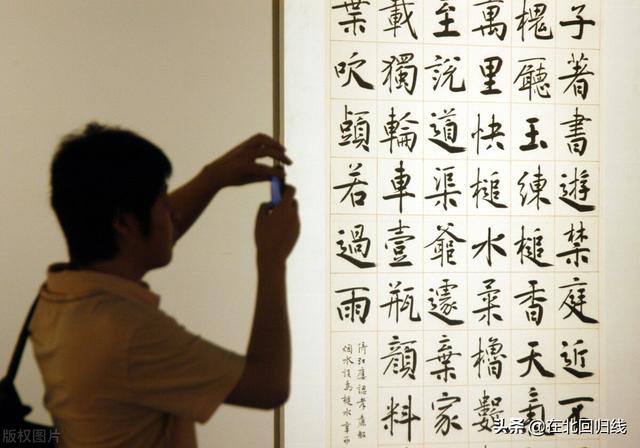 子著書遊禁庭近
槐廳玉練槌香天氣
萬里快槌水柔櫓數
至說道渠爺遽棄家
載獨輪車壹瓶顏料
葉吹若過雨
版权图片
头条 @在北回归线